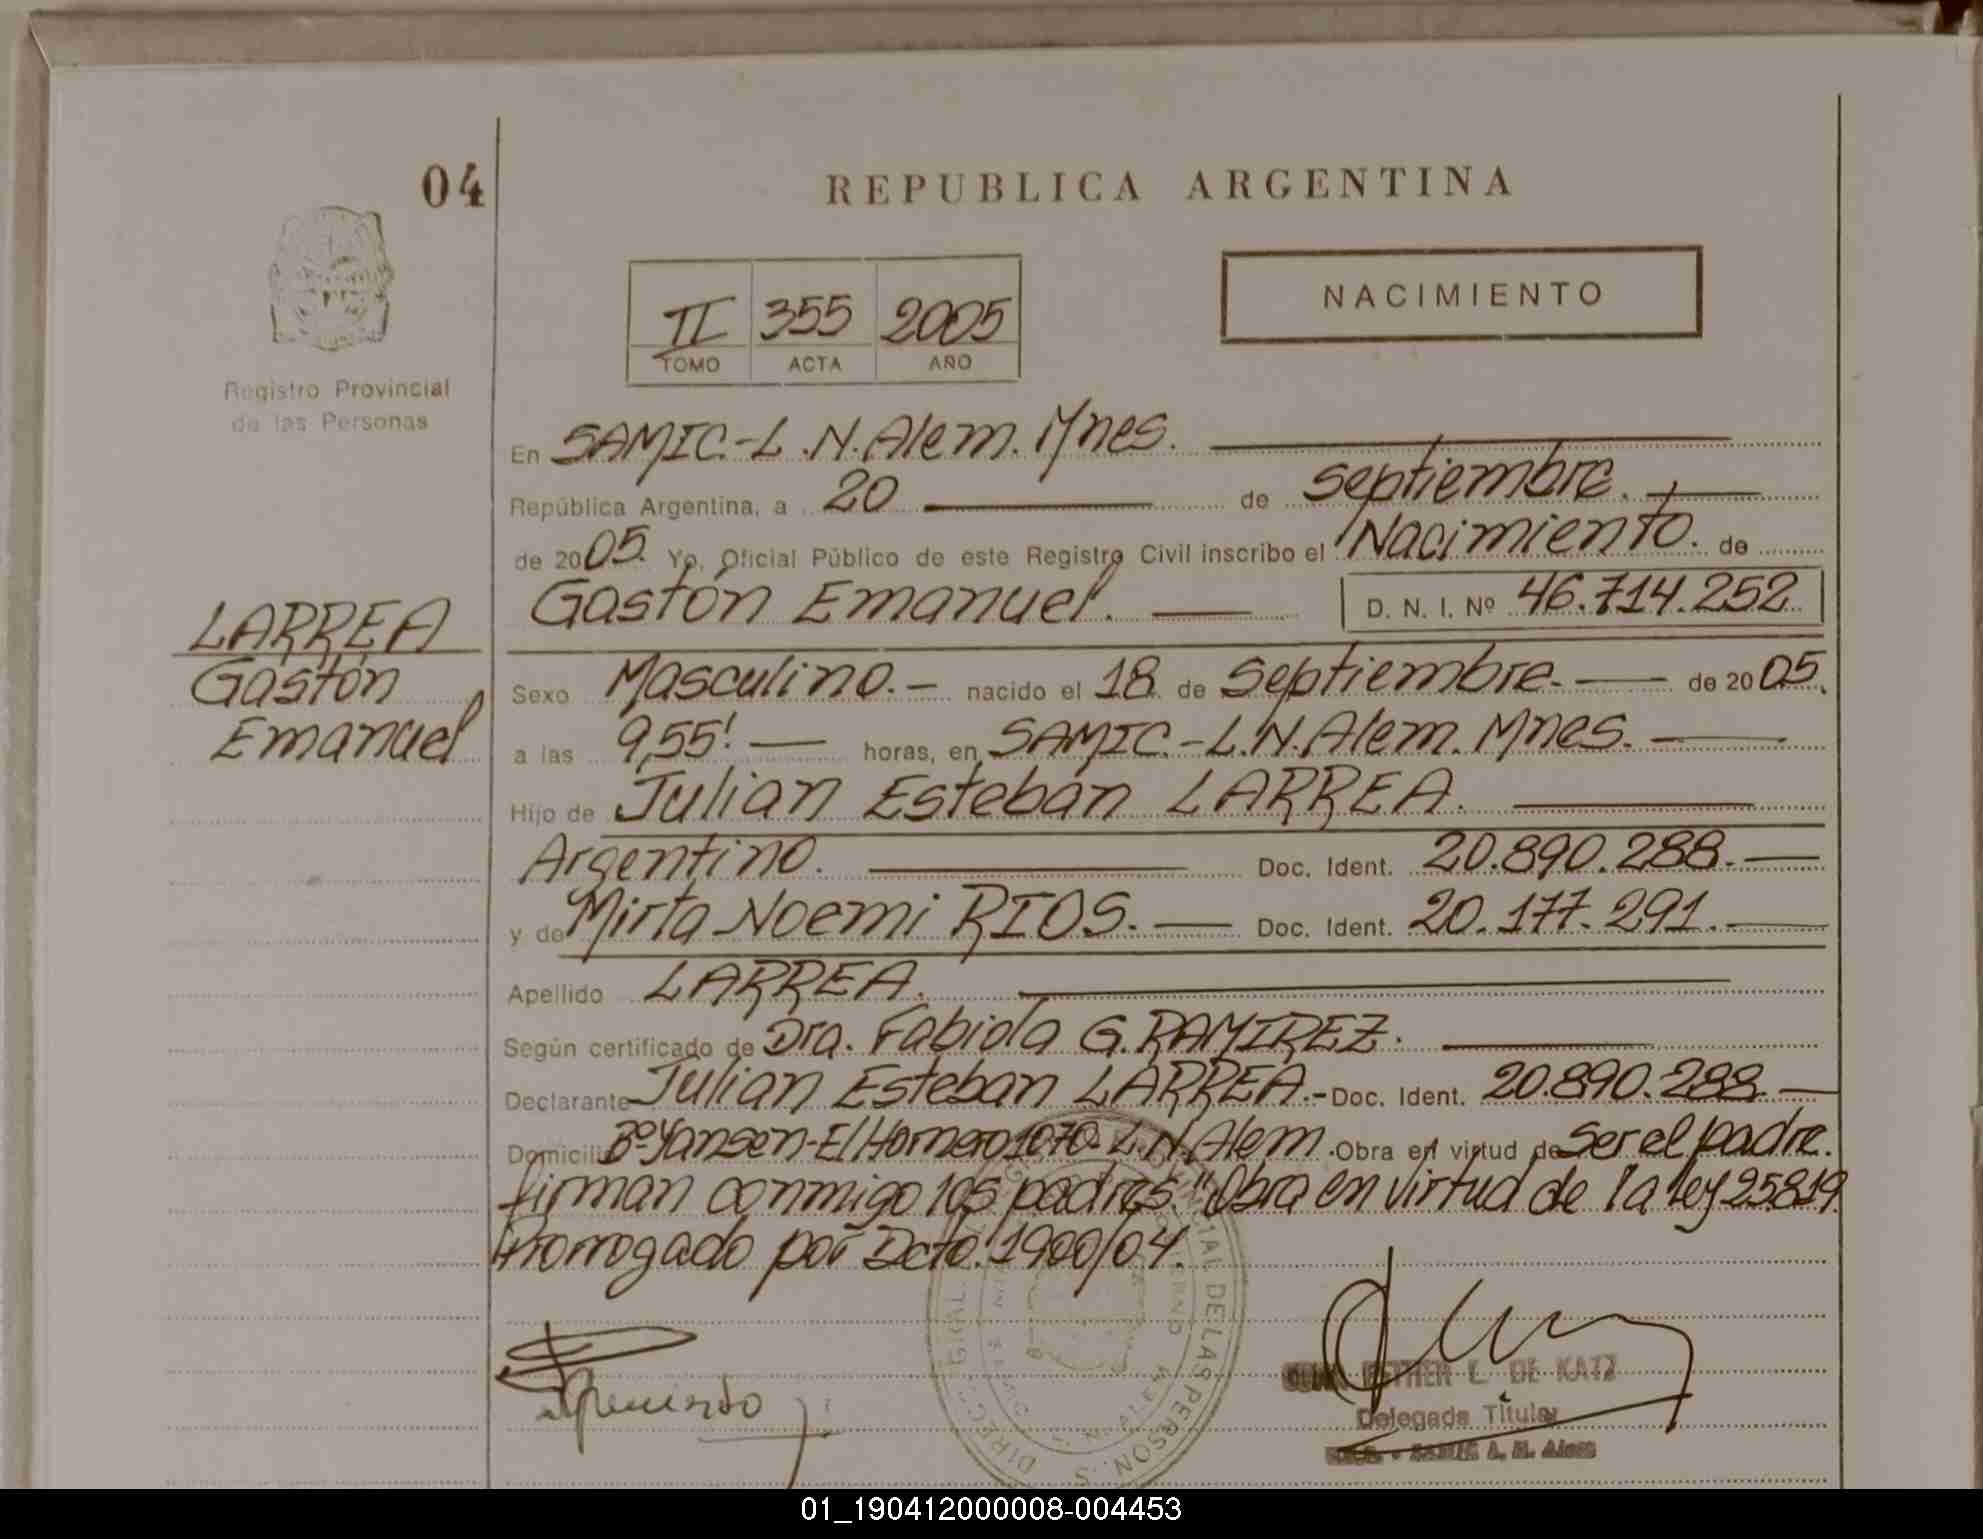 04
REPUBLICA ARGENTINA
NACIMIENTO
II 355 2005
TOMO ACTA AÑO
Registro Provincial
de las Personas
En SAMIC.-L.N.Alem. Mnes.
República Argentina, a 20 de septiembre.
de 2005. Yo, Oficial Público de este Registro Civil inscribo el Nacimiento. de
Gastón Emanuel. D. N. I. Nº 46.714.252
LARREA
Gastón
Emanuel
Sexo Masculino.- nacido el 18 de septiembre. de 2005.
a las 9,55' horas, en SAMIC.-L.N.Alem. Mnes.
Hijo de Julian Esteban LARREA.
Argentino. Doc. Ident. 20.890.288.
y de Mirta Noemi RIOS. Doc. Ident. 20.177.291.
Apellido LARREA.
Según certificado de Dra. Fabiola G. RAMIREZ.
Declarante Julian Esteban LARREA.- Doc. Ident. 20.890.288.
Domicilio Bº Yansen-El Hornero 1070- L.N.Alem. Obra en virtud de ser el padre.
firman conmigo los padres. "Obra en virtud de la ley 25819.
Prorrogado por Dcto. 1900/04.
ESTHER L. DE KATZ
Delegada Titular
SAMIC L. N. Alem
01_190412000008-004453